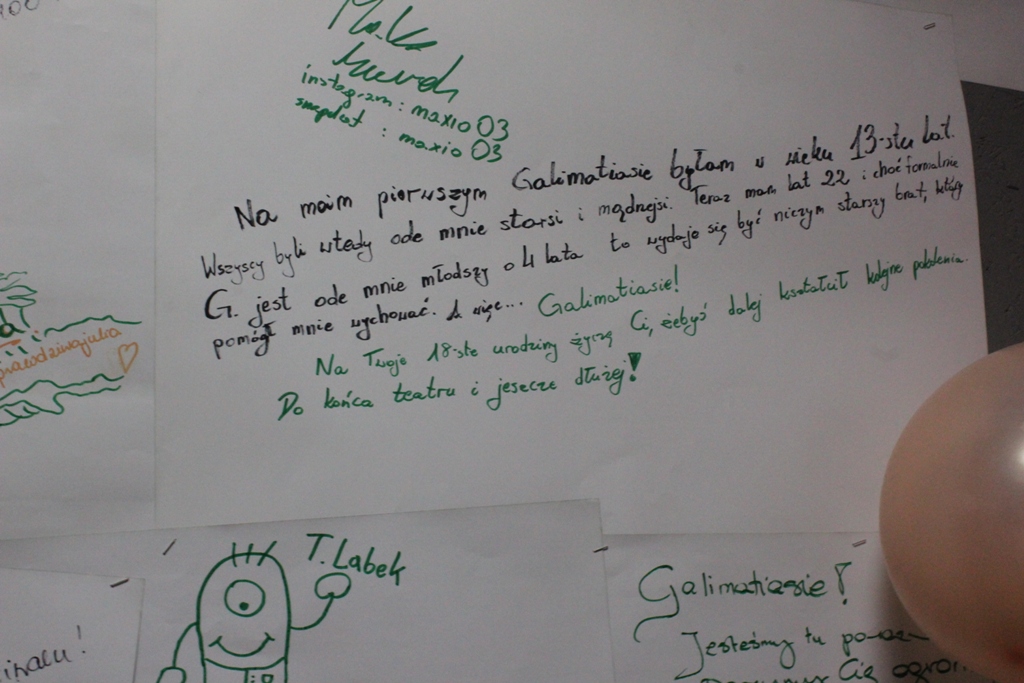 instagram : maxio 03
snapchat : maxio 03
Na moim pierwszym Galimatiasie byłam w wieku 13-stu lat.
Wszyscy byli wtedy ode mnie starsi i mądrzejsi. Teraz mam lat 22 i choć formalnie
G. jest ode mnie młodszy o 4 lata to wydaje się być niczym starszy brat, który
pomógł mnie wychować. A więc... Galimatiasie!
Na Twoje 18-ste urodziny życzę Ci, żebyś dalej kształcił kolejne pokolenia.
Do końca teatru i jeszcze dłużej!
prawdziwajulia
T. Labek
Galimatiasie!
Jesteśmy tu
Cię